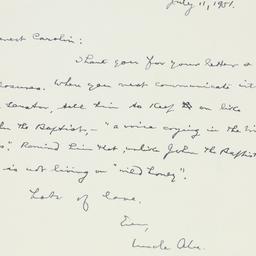 July 11, 1951.
rest Carolin:
Thank you for your letter &
losures. When you next communicate wit
Senator, tell him to keep on like
hn the Baptist, - "a voice crying in the wi
s". Remind him that, unlike John the Baptist
is not living on "wild honey".
Lots of love.
Ever,
Uncle Abe.